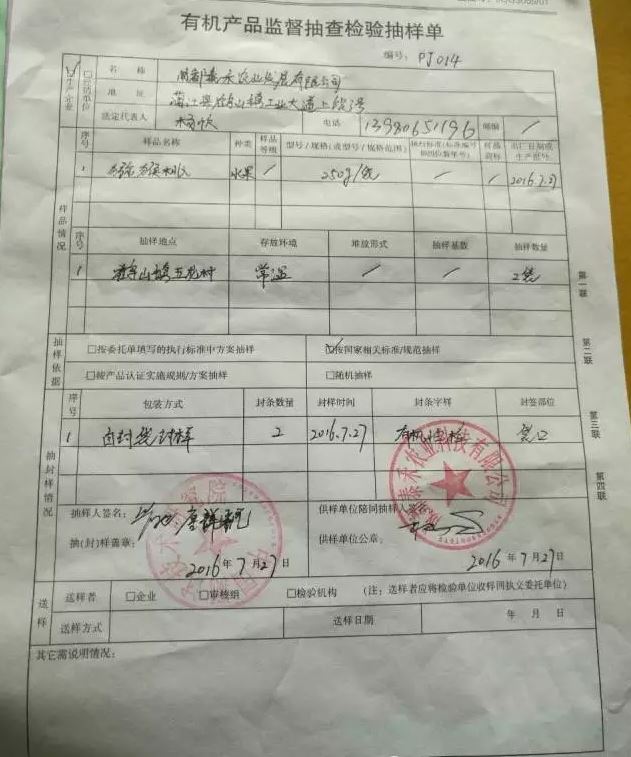 有机产品监督抽查检验抽样单
编号: PJ014
生产企业
□
名 称
农业发展有限公司
地 址
蒲江县鹤山镇工业大道上段3号
法定代表人
电话
13980651196
邮编
/
样品情况
序号
样品名称
种类
样品等级
型号/规格(或型号/规格范围)
执行标准(标准编号
样品商标
出厂日期或生产批号
1
水果
/
250g/袋
/
/
2016.7.27
序号
抽样地点
存放环境
堆放形式
抽样基数
抽样数量
1
鹤山镇五花村
常温
/
/
2袋
第一联
抽样依据
□按委托单填写的执行标准中方案抽样
☑按国家相关标准/规范抽样
第二联
□按产品认证实施规则/方案抽样
□随机抽样
抽封样情况
序号
包装方式
封条数量
封样时间
封条字样
封签部位
第三联
1
自封袋封样
2
2016.7.27
有机抽样
袋口
第四联
泰禾农业科技有限公司
抽样人签名:
供样单位陪同抽样人签名:
抽(封)样盖章:
供样单位公章:
2016年7月27日
2016年7月27日
送样
送样者
□企业
□审核组
□检验机构
(注: 送样者应将检验单位收样回执交委托单位)
送样方式
送样日期
年 月 日
其它需说明情况: